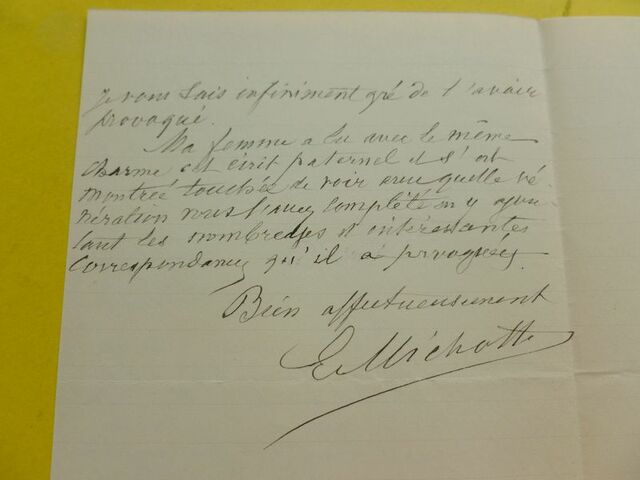 je vous sais infiniment gré de l'avoir
provoqué.
Ma femme a lu avec le même
charme cet écrit paternel et s'est
montrée touchée de voir avec quelle vé-
nération vous l'avez complété en y ajou-
tant les nombreuses et intéressantes
correspondances qu'il a provoquées.
Bien affectueusement
E Michotte